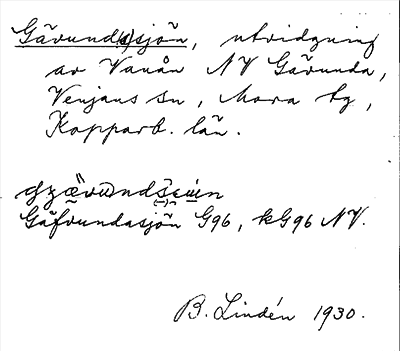 Gävund(a)sjön, utvidgning
av Vanån NV Gävunda,
Venjans sn, Mora tg,
Kopparb. län.
Gäfvundasjön G96, kG96 NV.
B. Lindén 1930.